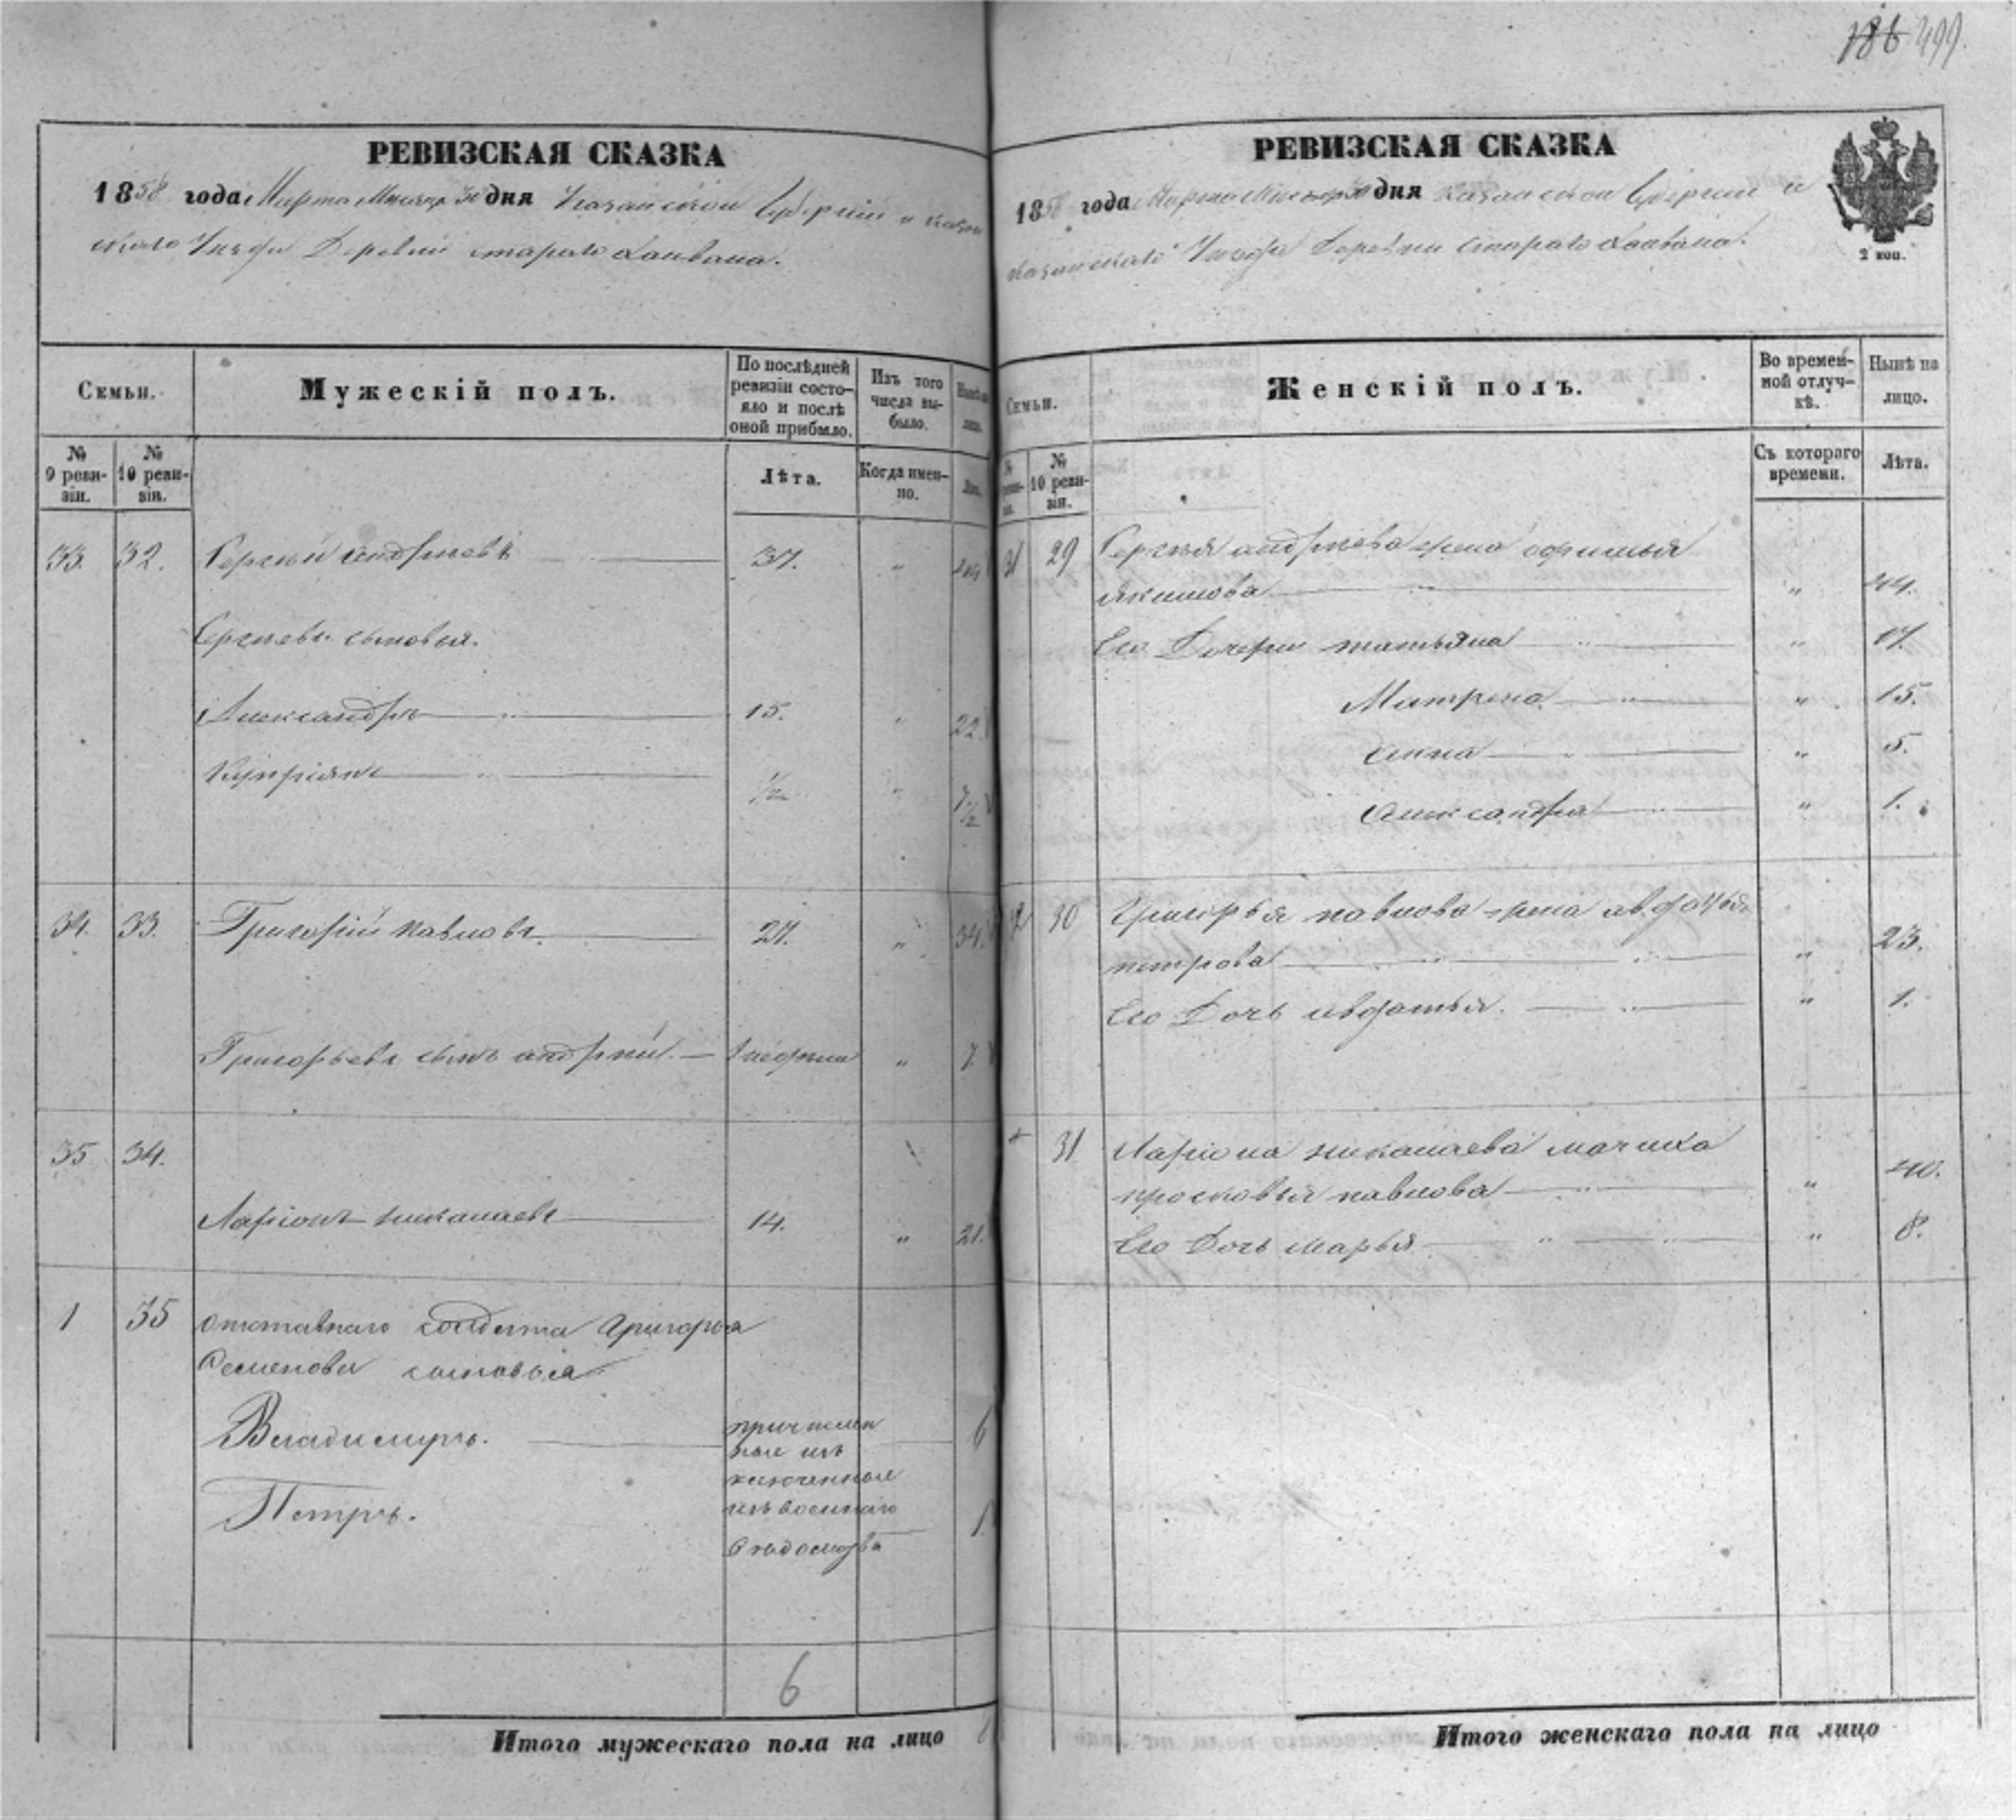 186 499.
РЕВИЗСКАЯ СКАЗКА
1858 года Марта Месяца 30 дня Казанской Губернии и Казан
скаго Уезда Деревни стараго
Семьи.
Мужескій полъ.
По послѣдней ревизіи состояло и послѣ оной прибыло.
Изъ того числа выбыло.
Нынѣ на лицо.
№ 9 ревизіи.
№ 10 ревизіи.
Лѣта.
Когда именно.
Лѣта.
33. 32. Сергѣй андреевъ 37. "
Сергѣевы сыновья.
Александръ 15. " 22.
Купріянъ 1/2 " 7 1/2
34. 33. Григорій павловъ. 27. " 34.
Григорьевъ сынъ андрей. " 7.
35 34.
Ларіонъ николаевъ 14. " 21.
1 35 отставнаго солдата григорья
Семенова сыновья
Владимиръ. 6
Петръ. 1.
причислен
ные изъ
изъ военнаго
вѣдомства
6
Итого мужескаго пола на лицо
РЕВИЗСКАЯ СКАЗКА
1858 года Марта Месяца 30 дня Казанской Губернии и
казанскаго Уезда Деревни стараго
2 коп.
Семьи.
Женскій полъ.
Во временной отлучкѣ.
Нынѣ на лицо.
№ 10 ревизіи.
Съ котораго времени.
Лѣта.
31 29 Сергѣя андреева жена офимья
якимова " 44.
Его Дочери татьяна " 17.
Матрена " 15.
анна " 5.
александра " 1.
30 Григорья павлова жена авдотья
петрова " 23.
Его Дочь авдотья. " 1.
31 Ларіона николаева мачиха
просковья павлова " 40.
Его Дочь марья " 8.
Итого женскаго пола на лицо